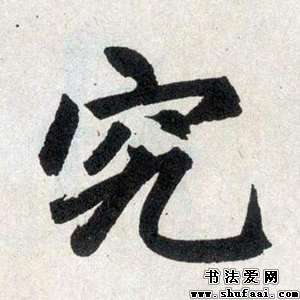 究
书法爱网
www.shufaai.com